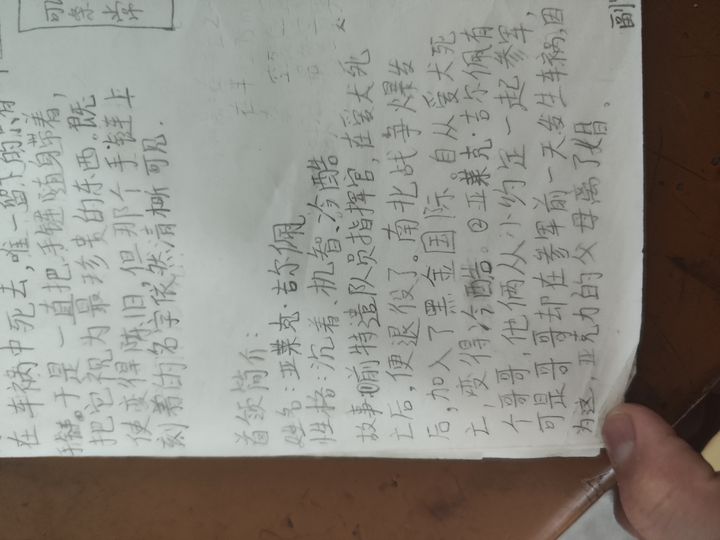 常
在车祸中死去,唯一留下的只有
手链。于是一直把手链随身带着,
把它视为最珍贵的东西。既
使变得陈旧,但那个手链上
刻着的名字依然清晰可见.
首领简介:
姓名:亚莱克·吉尔佩
性格:沉着、机智、冷酷
故事:①前特遣队员指挥官,在爱犬死
亡后,便退役了。南北战争爆发
后,加入了黑金国际。自从爱犬死
亡,变得冷酷。②亚莱克·吉尔佩有
个哥哥,他俩从小约定一起参军,
可是哥哥却在参军前一天发生车祸,因
为这,亚克力的父母离了婚。
副